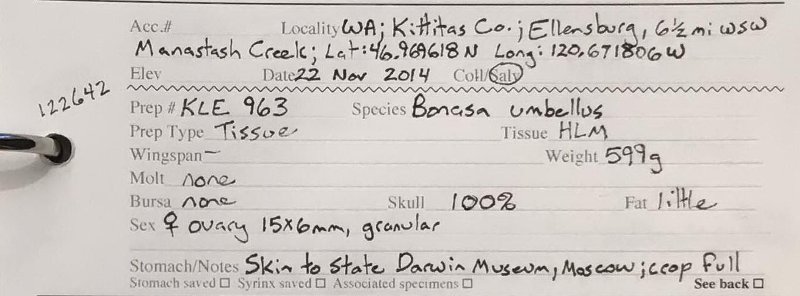 Acc.# Locality WA; Kittitas Co.; Ellensburg, 6½ mi WSW
Manastash Creek; Lat: 46.969618 N Long: 120.671806 W
Elev Date 22 Nov 2014 Coll/Salv
122642
Prep # KLE 963 Species Bonasa umbellus
Prep Type Tissue Tissue HLM
Wingspan — Weight 599g
Molt none
Bursa none Skull 100% Fat little
Sex ♀ ovary 15x6mm, granular
Stomach/Notes Skin to State Darwin Museum, Moscow; crop full
Stomach saved ☐ Syrinx saved ☐ Associated specimens ☐ See back ☐